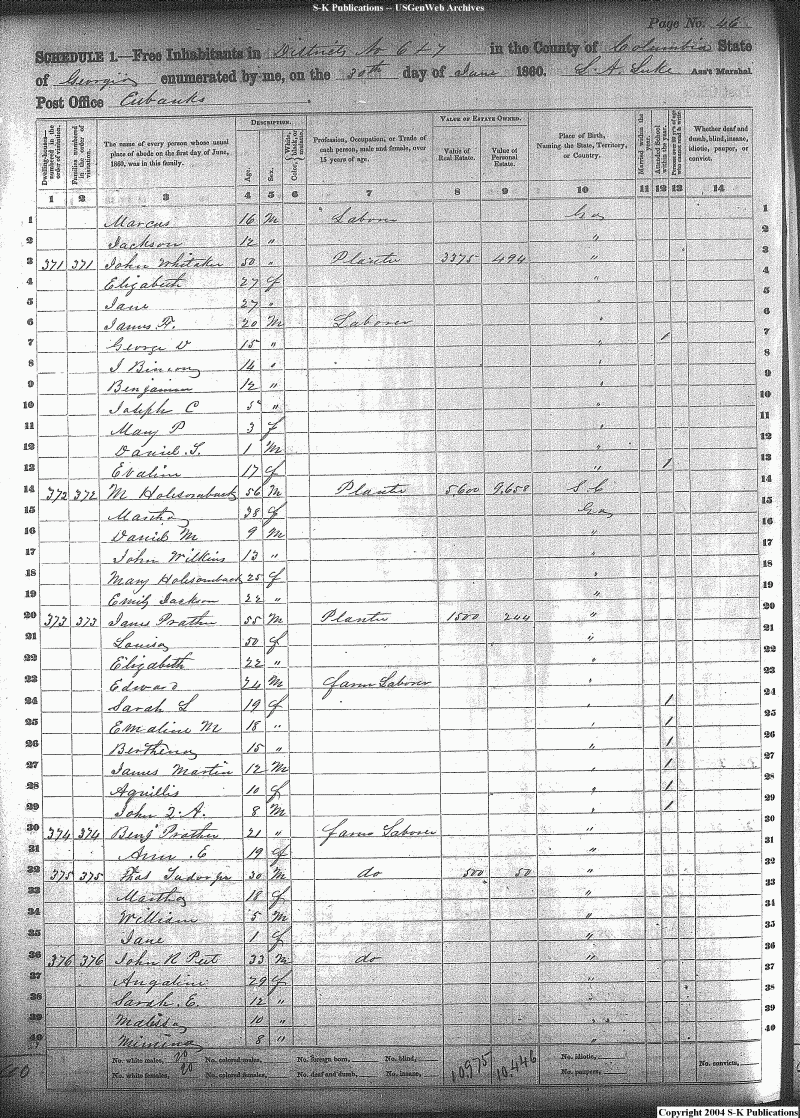 S-K Publications -- USGenWeb Archives
Page No. 46
SCHEDULE 1.—Free Inhabitants in Districts No 6 & 7 in the County of Columbia State
of Georgia enumerated by me, on the 30th day of June 1860. L. A. Luke Ass't Marshal
Post Office Eubanks
DESCRIPTION. VALUE OF ESTATE OWNED.
Dwelling-houses—numbered in the order of visitation. Families numbered in the order of visitation. The name of every person whose usual place of abode on the first day of June, 1860, was in this family. Age. Sex. Color, White, black, or mulatto. Profession, Occupation, or Trade of each person, male and female, over 15 years of age. Value of Real Estate. Value of Personal Estate. Place of Birth, Naming the State, Territory, or Country. Married within the year. Attended School within the year. Persons over 20 y'rs of age who cannot read & write. Whether deaf and dumb, blind, insane, idiotic, pauper, or convict.
1 2 3 4 5 6 7 8 9 10 11 12 13 14
1 Marcus 16 M Laborer Geo 1
2 Jackson 12 " " 2
3 371 371 John Whitaker 50 " Planter 3375 494 " 3
4 Elizabeth 27 f " 4
5 Jane 27 " " 5
6 James F. 20 M Laborer " 6
7 George D 15 " " / 7
8 J 14 " " 8
9 Benjamin 12 " " 9
10 Joseph C 5 " " 10
11 Mary P 3 f " 11
12 Daniel S. 1 M " 12
13 Evaline 17 f " / 13
14 372 372 M Holisomback 56 M Planter 5,600 9,658 S. C 14
15 Martha 38 f Geo 15
16 Daniel M 9 M " 16
17 John Wilkins 13 " " 17
18 Mary Holisomback 25 f " 18
19 Emily Jackson 22 " " 19
20 373 373 James Prather 55 M Planter 1500 244 " 20
21 Louisa 50 f " 21
22 Elizabeth 22 " " 22
23 Edward 24 M farm Laborer " 23
24 Sarah L 19 f " / 24
25 Emaline M 18 " " / 25
26 Berthena 15 " " / 26
27 James Martin 12 M " / 27
28 Aqvillis 10 f " / 28
29 John Q. A. 8 M " / 29
30 374 374 Benj Prather 21 " farm Laborer " 30
31 Ann . E 19 f " 31
32 375 375 Thos 30 M do 500 50 " 32
33 Martha 18 f " 33
34 William 5 M " 34
35 Jane 1 f " 35
36 376 376 John R Peet 33 M do " 36
37 Angaline 29 f " 37
38 Sarah . E. 12 " " 38
39 Malissa 10 " " 39
40 Mimima 8 " " 40
No. white males, 20 No. colored males, No. foreign born, No. blind, 10975 10,446 No. idiotic,
No. white females, 20 No. colored females, No. deaf and dumb, No. insane, No. paupers, No. convicts,
Copyright 2004 S-K Publications